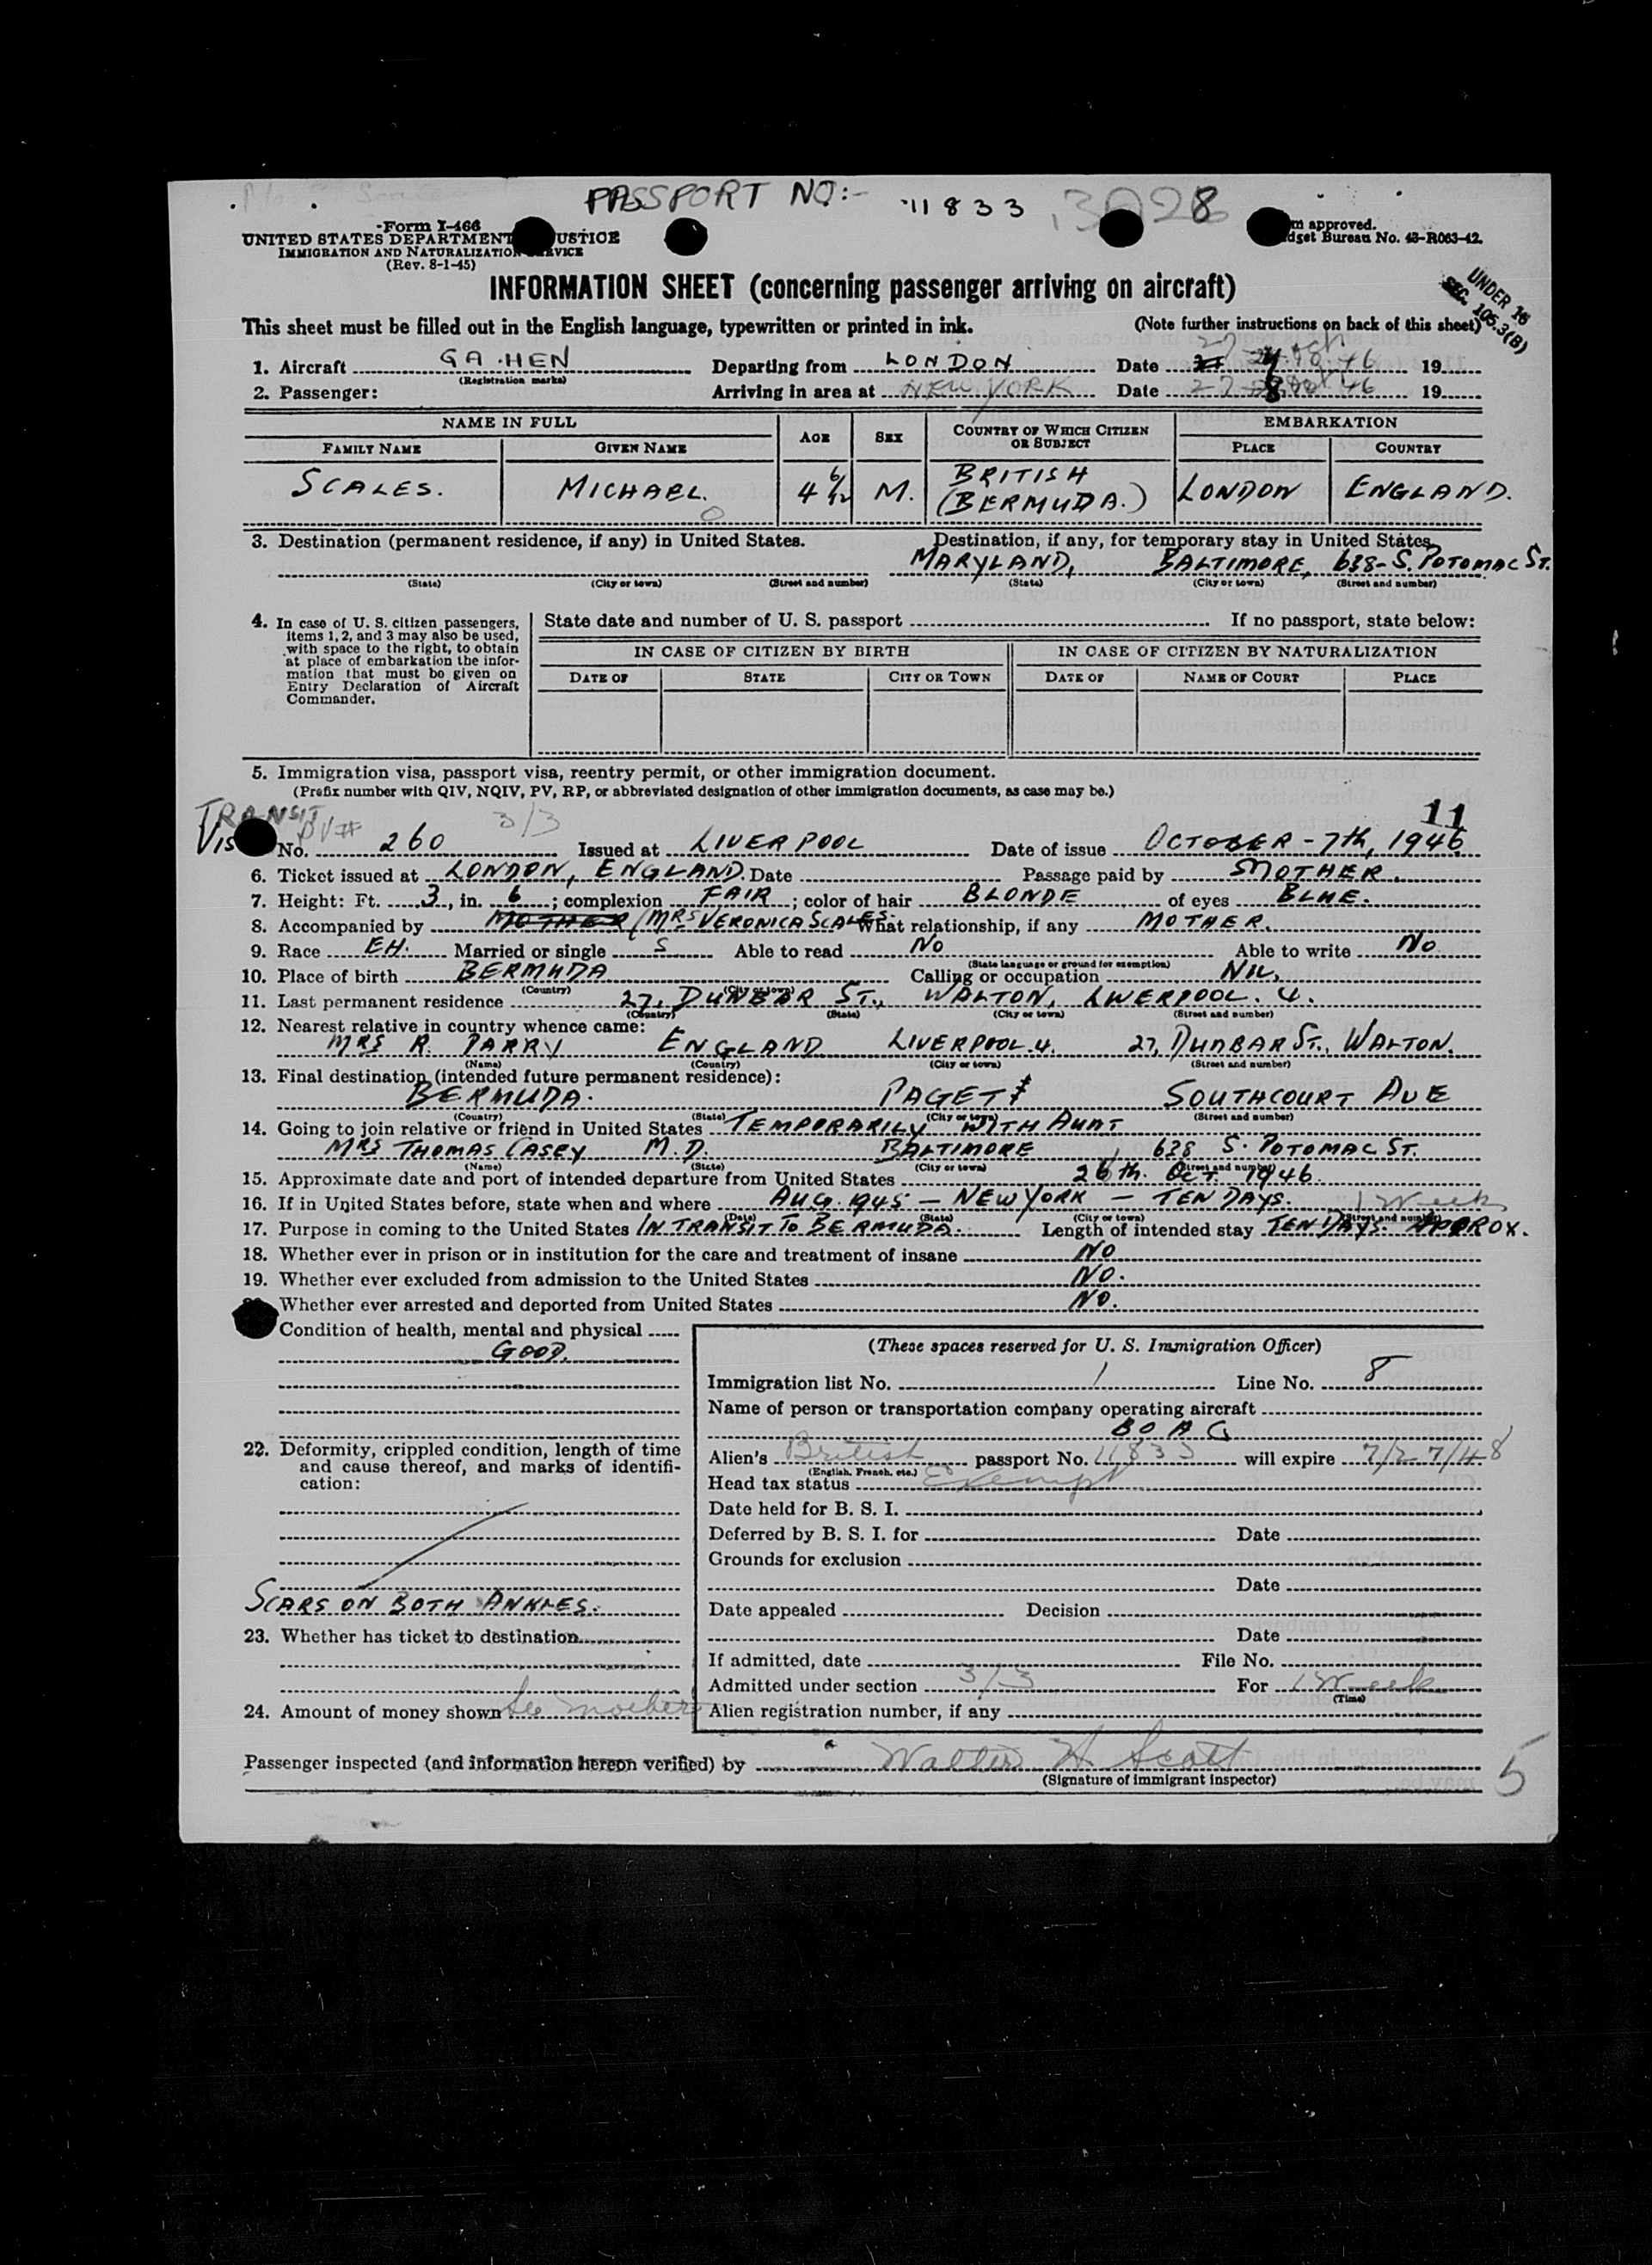 PASSPORT NO:- 11833 3028
Form I-466
UNITED STATES DEPARTMENT JUSTICE
IMMIGRATION AND NATURALIZATION SERVICE
(Rev. 8-1-45)
approved.
Bureau No. 43-R063-42.
INFORMATION SHEET (concerning passenger arriving on aircraft)
UNDER 16
SEC. 105.3(B)
This sheet must be filled out in the English language, typewritten or printed in ink. (Note further instructions on back of this sheet)
1. Aircraft GA-HEN Departing from LONDON Date 46 19
(Registration marks)
2. Passenger: Arriving in area at NEW YORK Date 27 46 19
NAME IN FULL AGE SEX COUNTRY OF WHICH CITIZEN OR SUBJECT EMBARKATION
FAMILY NAME GIVEN NAME PLACE COUNTRY
SCALES. MICHAEL. 4 6/12 M. BRITISH (BERMUDA.) LONDON ENGLAND.
3. Destination (permanent residence, if any) in United States. Destination, if any, for temporary stay in United States.
MARYLAND, BALTIMORE, 638-S. POTOMAC ST.
(State) (City or town) (Street and number) (State) (City or town) (Street and number)
4. In case of U. S. citizen passengers, items 1, 2, and 3 may also be used, with space to the right, to obtain at place of embarkation the information that must be given on Entry Declaration of Aircraft Commander.
State date and number of U. S. passport If no passport, state below:
IN CASE OF CITIZEN BY BIRTH IN CASE OF CITIZEN BY NATURALIZATION
DATE OF STATE CITY OR TOWN DATE OF NAME OF COURT PLACE
5. Immigration visa, passport visa, reentry permit, or other immigration document.
(Prefix number with QIV, NQIV, PV, RP, or abbreviated designation of other immigration documents, as case may be.)
TRANSIT 3/3 11
VIS PV# No. 260 Issued at LIVERPOOL Date of issue OCTOBER - 7th, 1946
6. Ticket issued at LONDON, ENGLAND. Date Passage paid by MOTHER.
7. Height: Ft. 3, in. 6; complexion FAIR; color of hair BLONDE of eyes BLUE.
8. Accompanied by MOTHER/MRS VERONICA SCALES. What relationship, if any MOTHER.
9. Race EH. Married or single S Able to read No Able to write No
(State language or ground for exemption)
10. Place of birth BERMUDA Calling or occupation NIL.
(Country) (City or town)
11. Last permanent residence 27, DUNBAR ST., WALTON, LIVERPOOL. 4.
(Country) (State) (City or town) (Street and number)
12. Nearest relative in country whence came:
MRS R. PARRY ENGLAND LIVERPOOL. 4. 27, DUNBAR ST., WALTON.
(Name) (Country) (City or town) (Street and number)
13. Final destination (intended future permanent residence):
BERMUDA. PAGET SOUTHCOURT AVE
(Country) (State) (City or town) (Street and number)
14. Going to join relative or friend in United States TEMPORARILY WITH AUNT
MRS THOMAS CASEY M.D. BALTIMORE 638 S. POTOMAC ST.
(Name) (State) (City or town) (Street and number)
15. Approximate date and port of intended departure from United States 26th. OCT. 1946.
16. If in United States before, state when and where AUG. 1945 - NEW YORK - TEN DAYS. 1 Week
(Date) (State) (City or town) (Street and number)
17. Purpose in coming to the United States IN TRANSIT TO BERMUDA. Length of intended stay TEN DAYS. APPROX.
18. Whether ever in prison or in institution for the care and treatment of insane NO
19. Whether ever excluded from admission to the United States NO.
Whether ever arrested and deported from United States NO.
Condition of health, mental and physical
GOOD.
22. Deformity, crippled condition, length of time and cause thereof, and marks of identification:
SCARS ON BOTH ANKLES.
23. Whether has ticket to destination
24. Amount of money shown See mother
(These spaces reserved for U. S. Immigration Officer)
Immigration list No. 1 Line No. 8
Name of person or transportation company operating aircraft
BOAC
Alien's British passport No. 11833 will expire 7/27/48
(English, French, etc.)
Head tax status Exempt
Date held for B. S. I.
Deferred by B. S. I. for Date
Grounds for exclusion
Date
Date appealed Decision
Date
If admitted, date File No.
Admitted under section 3/3 For 1 Week
(Time)
Alien registration number, if any
Passenger inspected (and information hereon verified) by Walter H Scott
(Signature of immigrant inspector)
5